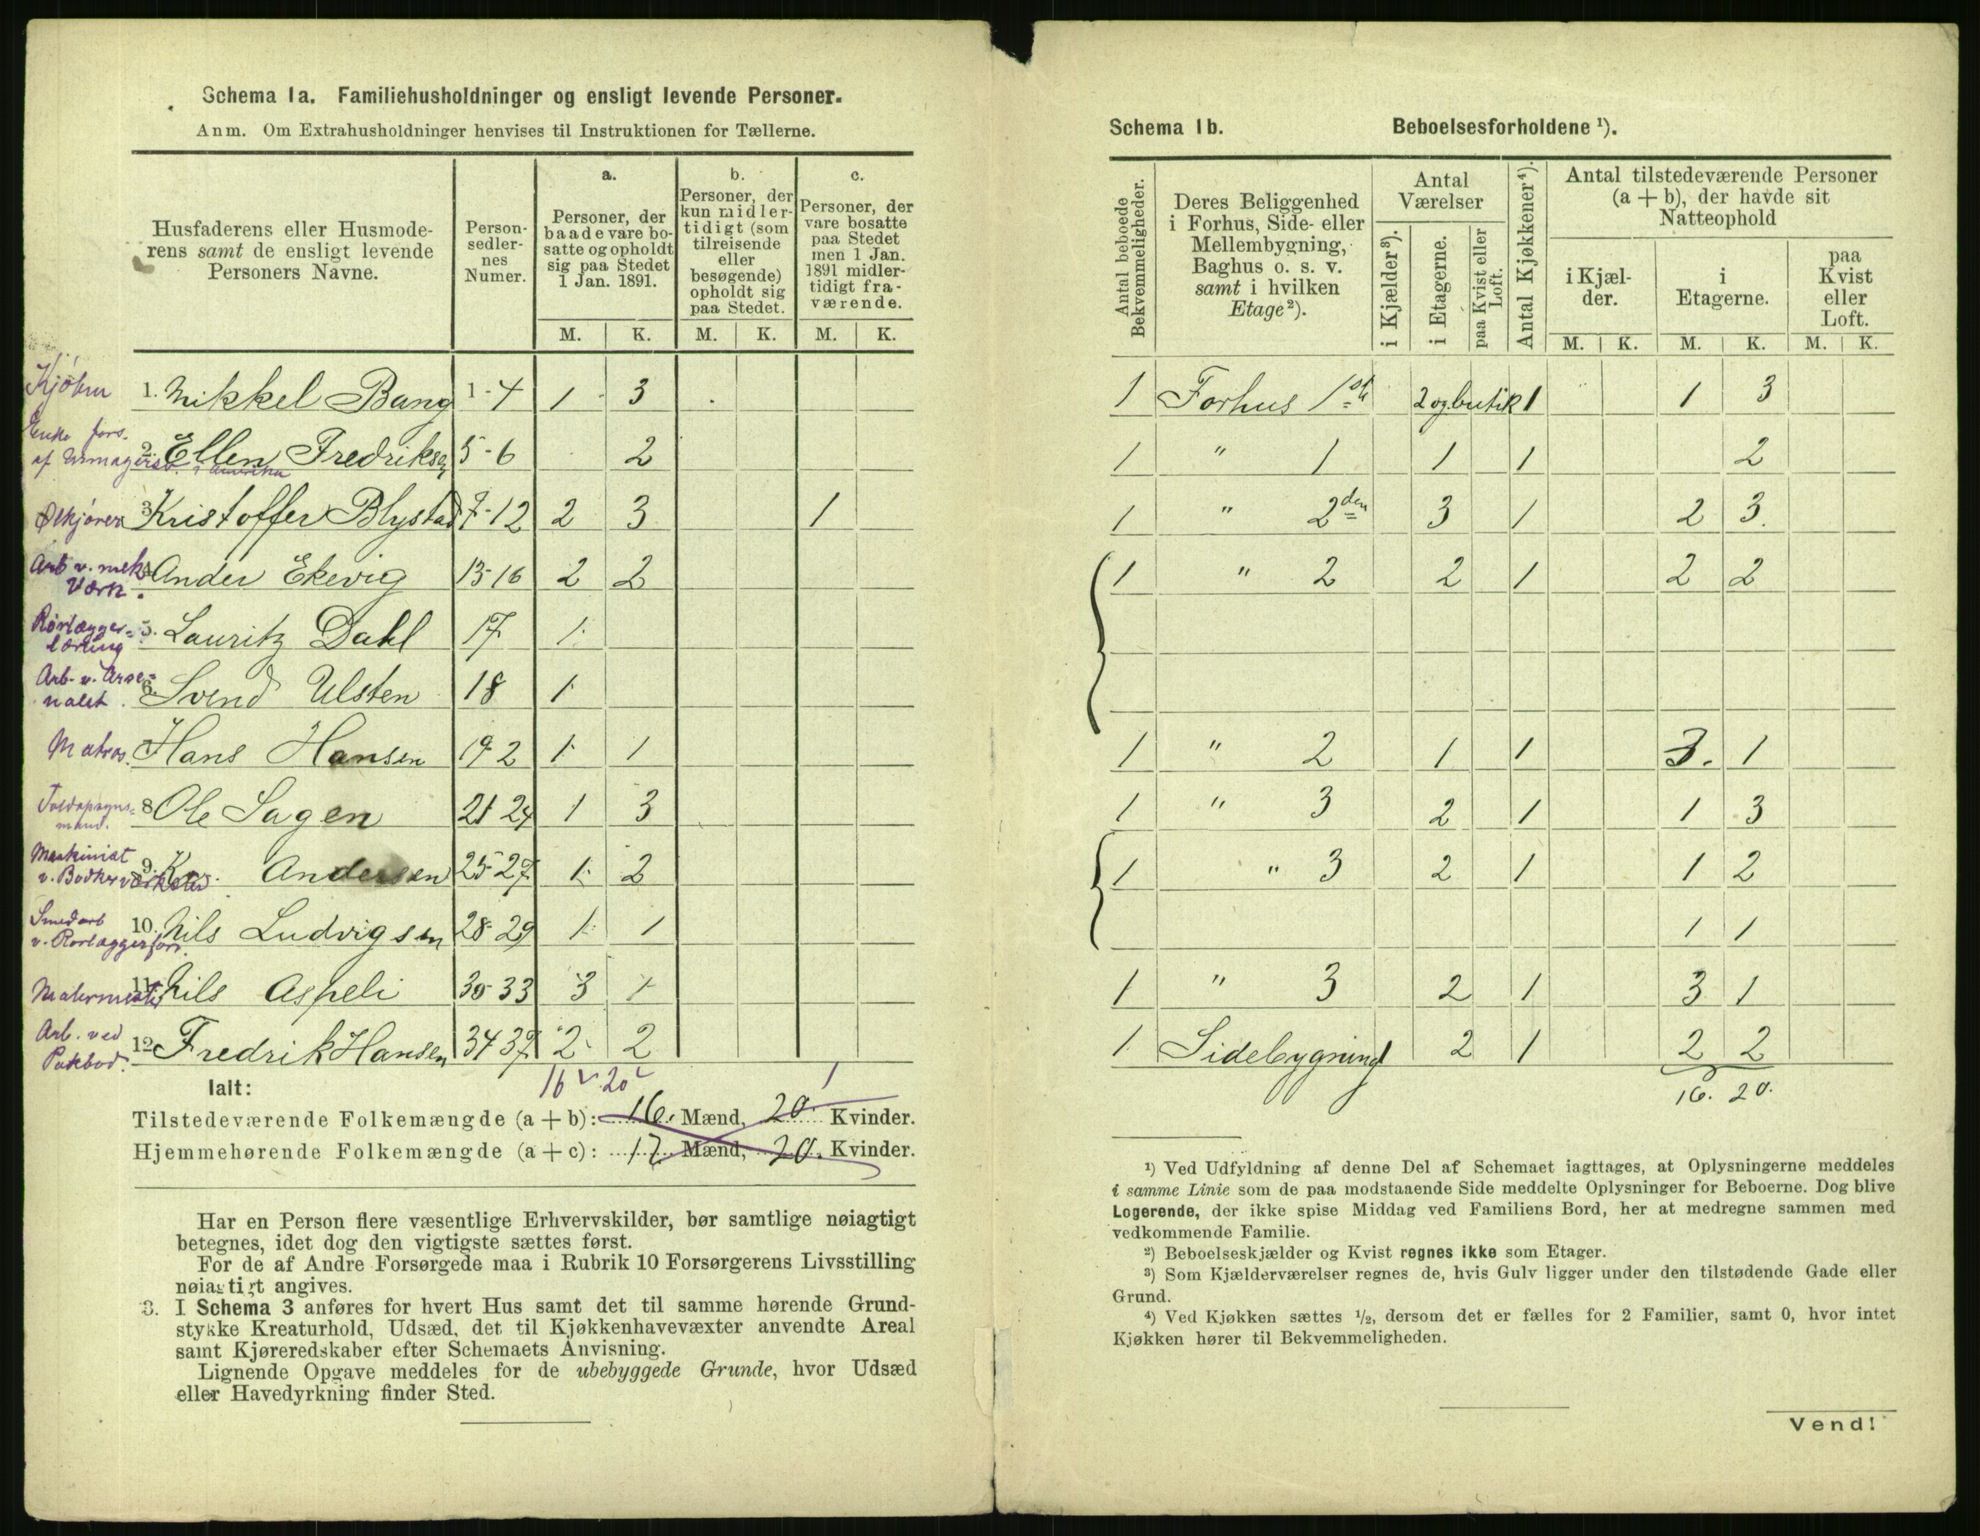 Schema 1a. Familiehusholdninger og ensligt levende Personer.
Anm. Om Extrahusholdninger henvises til Instruktionen for Tællerne.
Husfaderens eller Husmoderens samt de ensligt levende Personers Navne.
Person-sedlernes Numer.
a. Personer, der baade vare bosatte og opholdt sig paa Stedet 1 Jan. 1891.
b. Personer, der kun midlertidigt (som tilreisende eller besøgende) opholdt sig paa Stedet.
c. Personer, der vare bosatte paa Stedet men 1 Jan. 1891 midlertidigt fraværende.
M. K. M. K. M. K.
Kjøbm 1. Mikkel Bang 1-4 1 3
Enke fors. af Urmagersv. i Amerika 2. Ellen Fredriksen 5-6 2
Ølkjører 3. Kristoffer Blystad 7-12 2 3 1
Arb v. mek Værk. 4. Ander Ekevig 13-16 2 2
Rørlægger-lærling 5. Lauritz Dahl 17 1
Arb. v. Arsenalet. 6. Svend Ulsten 18 1
Matros. 7. Hans Hansen 19-2 1 1
Toldopsyns-mand. 8. Ole Sagen 21 24 1 3
Maskinist v. Bødkerværksted 9. Kr. Andersen 25-27 1 2
Smedarb v. Rørlæggerforr. 10. Nils Ludvigsen 28-29 1 1
Malermester 11. Nils Aspeli 30-33 3 1
Arb. ved Pakbod. 12. Fredrik Hansen 34 37 2 2
Ialt: 16 20 1
Tilstedeværende Folkemængde (a + b): 16. Mænd, 20. Kvinder.
Hjemmehørende Folkemængde (a + c): 17 Mænd, 20. Kvinder.
Har en Person flere væsentlige Erhvervskilder, bør samtlige nøiagtigt
betegnes, idet dog den vigtigste sættes først.
For de af Andre Forsørgede maa i Rubrik 10 Forsørgerens Livsstilling
nøiagtigt angives.
3. I Schema 3 anføres for hvert Hus samt det til samme hørende Grund-
stykke Kreaturhold, Udsæd, det til Kjøkkenhavevæxter anvendte Areal
samt Kjøreredskaber efter Schemaets Anvisning.
Lignende Opgave meddeles for de ubebyggede Grunde, hvor Udsæd
eller Havedyrkning finder Sted.
Schema 1b. Beboelsesforholdene ¹).
Antal beboede Bekvemmeligheder.
Deres Beliggenhed i Forhus, Side- eller Mellembygning, Baghus o. s. v. samt i hvilken Etage²).
Antal Værelser
i Kjælder³).
i Etagerne.
paa Kvist eller Loft.
Antal Kjøkkener⁴).
Antal tilstedeværende Personer (a + b), der havde sit Natteophold
i Kjælder.
i Etagerne.
paa Kvist eller Loft.
M. K. M. K. M. K.
1 Forhus 1ste 2 og butik 1 1 3
1 " 1 1 1 2
1 " 2den 3 1 2 3.
1 " 2 2 1 2 2
1 " 2 1 1 3. 1
1 " 3 2 1 1 3
1 " 3 2 1 1 2
1 1
1 " 3 2 1 3 1
1 Sidebygning 2 1 2 2
16. 20.
¹) Ved Udfyldning af denne Del af Schemaet iagttages, at Oplysningerne meddeles
i samme Linie som de paa modstaaende Side meddelte Oplysninger for Beboerne. Dog blive
Logerende, der ikke spise Middag ved Familiens Bord, her at medregne sammen med
vedkommende Familie.
²) Beboelseskjælder og Kvist regnes ikke som Etager.
³) Som Kjælderværelser regnes de, hvis Gulv ligger under den tilstødende Gade eller
Grund.
⁴) Ved Kjøkken sættes ½, dersom det er fælles for 2 Familier, samt 0, hvor intet
Kjøkken hører til Bekvemmeligheden.
Vend!